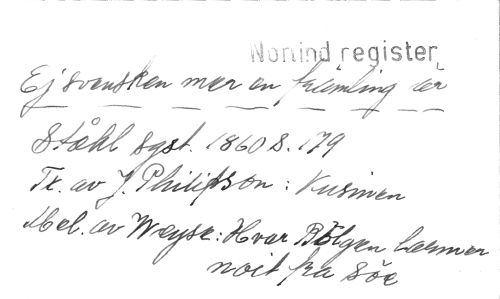 Norlind register.
Ej svensken mer en främling är
Ståhl sgst. 1860 S. 179
Tr. av J. Philipson: Kusinen
Mel. av Weyse: Hvor Bölgen larmer
noit fra Söe